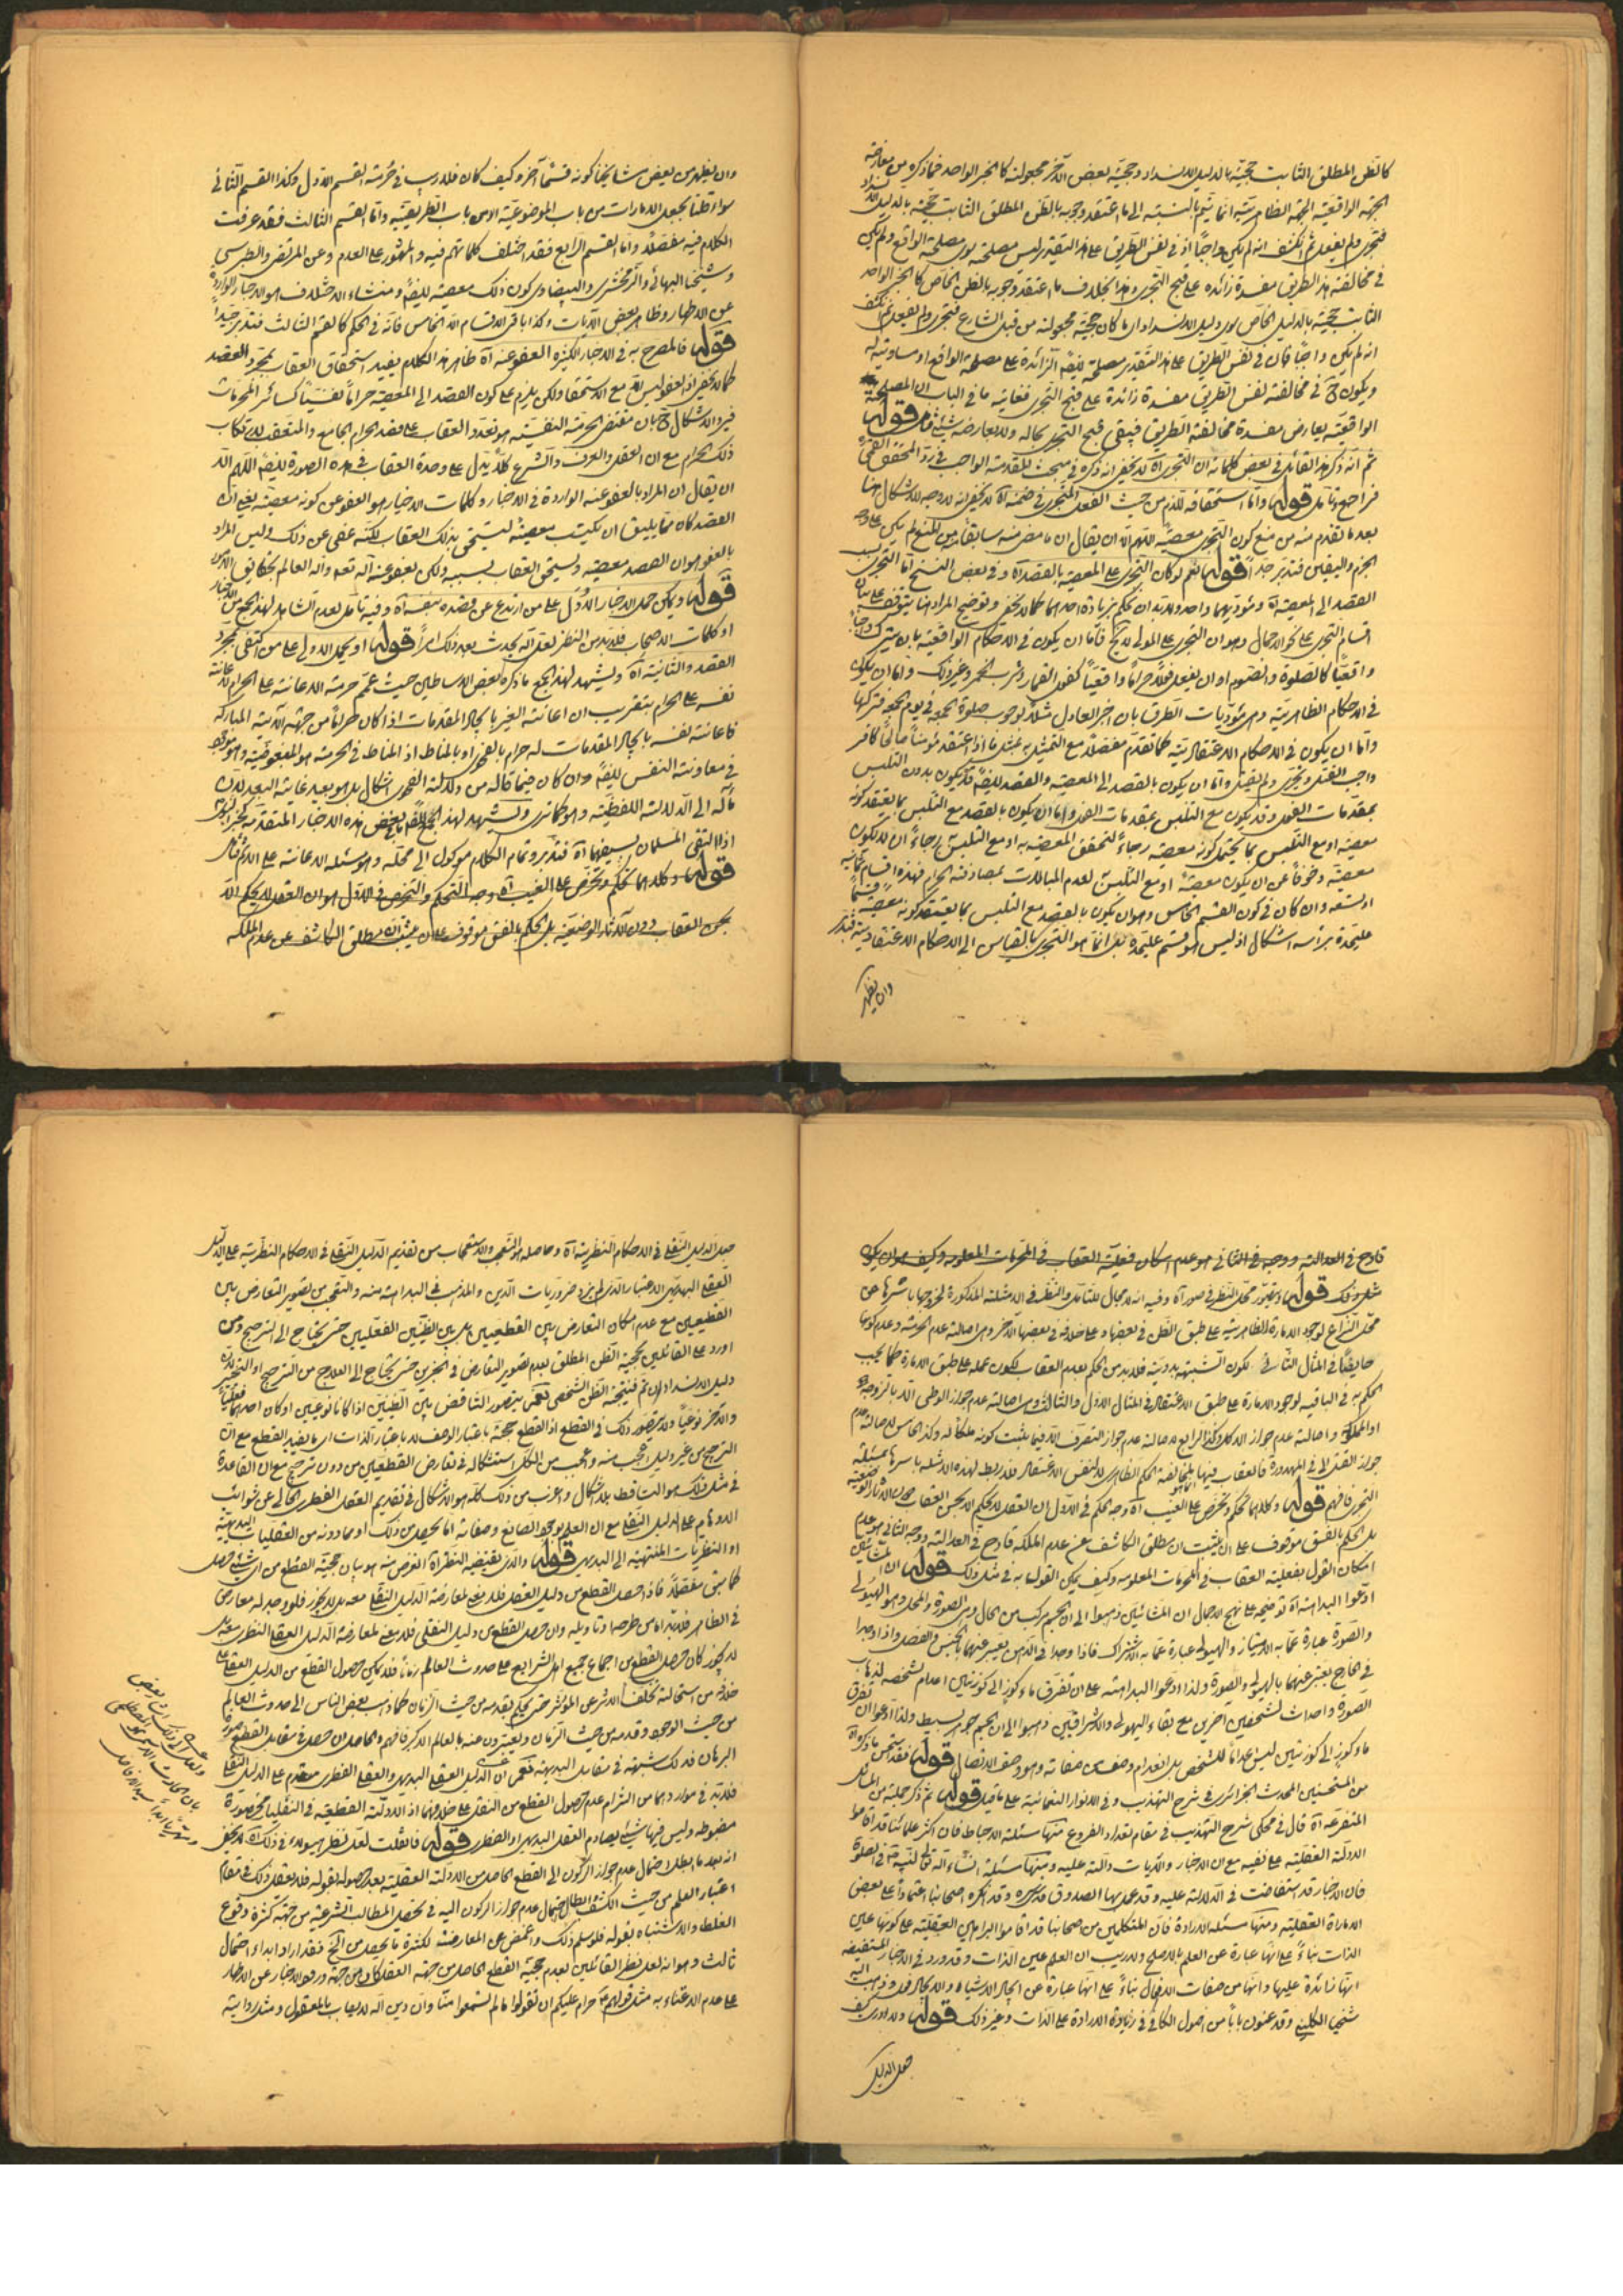 كالظن المطلق الثابت حجيته بالدليل الانسداد وحجية بعض الآخر مجعولة كالخبر الواحد فما ذكره من معارضة
الجهة الواقعية الجهة الظاهرية انما يتم بالنسبة الى ما اعتقد وجوبه بالظن المطلق الثابت حجيته بالدليل الانسداد
فتجرى ولم يفعل ثم انكشف انه لم يكن واجباً اذ في نفس الطريق على هذا التقدير ليس مصلحة سوى مصلحة الواقع ولم يكن
في مخالفة هذا الطريق مفسدة زائدة على قبح التجرى وهذا بخلاف ما اعتقد وجوبه بالظن الخاص كالخبر الواحد
الثابت حجيته بالدليل الخاص سوى دليل الانسداد اى ما كان حجيته مجعولة من قبل الشارع فتجرى ولم يفعل ثم انكشف
انه لم يكن واجباً فان في نفس الطريق على هذا التقدير مصلحة ايضا الزائدة على مصلحة الواقع او مساوية له
ويكون ح في مخالفة نفس الطريق مفسدة زائدة على قبح التجرى فغاية ما في الباب ان المصلحة
الواقعية يعارض مفسدة مخالفة الطريق فيبقى قبح التجرى بحاله ولا يعارضه شيئ قوله
ثم انه ذكر هذا القائل في بعض كلماته ان التجرى آه لا يخفى انه ذكره في مبحث المقدمة الواجب في رد المحقق القمى
فراجع وتأمل قوله واما استحقاقه للذم من حيث الفعل المتجرى في ضمنه آه لا يخفى انه لا وجه للاشكال هنا
بعد ما تقدم منه من منع كون التجرى معصية اللهم الا ان يقال ان ما مضى منه سابقا من المنع لم يكن على وجه
الجزم واليقين فتدبر جدا قوله نعم لو كان التجرى على المعصية بالقصد آه وفي بعض النسخ اما التجرى بسبب
القصد الى المعصية آه ومؤديهما واحد ولا بد ان نحكم بزيادة احدهما كما لا يخفى وتوضيح المراد هنا يتوقف على بيان
اقسام التجرى على نحو الاجمال وهو ان التجرى على المولى لا يخ فاما ان يكون في الاحكام الواقعية بان يترك واجباً
واقعياً كالصلوة والصوم او ان يفعل فعلا حراماً واقعياً كفعل القمار وشرب الخمر وغير ذلك واما ان يكون
في الاحكام الظاهرية وهى مؤديات الطرق بان اخبر العادل مثلا بوجوب صلوة الجمعة في يوم الجمعة فتركها
واما ان يكون في الاحكام الاعتقادية كما تقدم مفصلا مع التمثيل به بمثل ما اذا اعتقد مؤمناً صالحاً كافر
واجب القتل وتجرى ولم يقتل واما ان يكون بالقصد الى المعصية والقصد ايضا قد يكون بدون التلبس
بمقدمات الفعل وقد يكون مع التلبس بمقدمات الفعل واما ان يكون بالقصد مع التلبس بما يعتقد كونه
معصية او مع التلبس بما يحتمل كونه معصية رجاءً لتحقق المعصية به او مع التلبس رجاءً ان لا يكون
معصية وخوفاً عن ان يكون معصية او مع التلبس لعدم المبالات بمصادفة الحرام فهذه اقسام ثمانية
او تسعة وان كان في كون القسم الخامس وهو ان يكون بالقصد مع التلبس بما يعتقد كونه معصية قسماً
عليحدة برأسه اشكال اذ ليس هو قسم عليحدة بل انما هو التجرى بالقياس الى الاحكام الاعتقادية فتدبر
وان يظهر
وان يظهر من بعض مشايخنا كونه قسماً آخر وكيف كان فلا ريب في حرمة القسم الاول وكذا القسم الثانى
سواء قلنا بجعل الامارات من باب الموضوعية او من باب الطريقية واما القسم الثالث فقد عرفت
الكلام فيه مفصلا واما القسم الرابع فقد اختلف كلماتهم فيه والمشهور على العدم وعن المرتضى والطبرسى
وشيخنا البهائى والزمخشرى والبيضاوى كون ذلك معصية ايضا ومنشاء الاختلاف هو الاخبار الواردة
عن الاطهار وظاهر بعض الآيات وكذا باقى الاقسام الا الخامس فانه في الحكم كالقسم الثالث فتدبر جيداً
قوله فالمصرح به في الاخبار الكثيرة العفو عنه آه ظاهر هذا الكلام يفيد استحقاق العقاب بمجرد القصد
كما لا يخفى اذ العفو ليس الا مع الاستحقاق ولكن يلزم على كون القصد الى المعصية حراماً نفسياً كسائر المحرمات
فيرد الاشكال ح بان مقتضى الحرمة النفسية هو تعدد العقاب على قصد الحرام الجامع والمتعقب لارتكاب
ذلك الحرام مع ان العقل والعرف والشرع كلا يدل على وحدة العقاب في هذه الصورة ايضا اللهم الا
ان يقال ان المراد بالعفو عنه الواردة في الاخبار وكلمات الاخيار هو العفو عن كونه معصية يعنى ان
القصد كان مما يليق ان يكتب معصية ليستحق بذلك العقاب لكنه عفى عن ذلك وليس المراد
بالعفو هو ان القصد معصية ويستحق العقاب بسببه ولكن يعفو عنه الله تعالى والله العالم بحقايق الامور
قوله ويمكن حمل الاخبار الاول على من ارتدع عن قصده بنفسه آه وفيه تأمل لعدم الشاهد لهذا الجمع من الاخبار
او كلمات الاصحاب فلا بد من النظر لعل الله يحدث بعد ذلك امراً قوله او يحمل الاولى على من اكتفى بمجرد
القصد والثانية آه ويشهد لهذا الجمع ما ذكره بعض الاساطين حيث عمم حرمة الاعانة على الحرام لاعانة
نفسه على الحرام بتقريب ان اعانة الغير بايجاد المقدمات اذا كان حراماً من جهة الآية المباركة
فاعانة نفسه بايجاد المقدمات له حرام بالفحوى او بالمناط اذ المناط في الحرمة هو المبغوضية وهو موجود
في معاونة النفس ايضا وان كان فيما قاله من دلالة الفحوى اشكال بل هو بعيد غاية البعد لان
مآله الى الدلالة اللفظية وهو كما ترى ويشهد لهذا الجمع ايضا بعض هذه الاخبار المتقدمة كخبر النبوى
اذا التقى المسلمان بسيفهما آه فتدبر وتمام الكلام موكول الى محله وهو مسئلة الاعانة على الاثم فتأمل
قوله وكلاهما تحكم وتخرص على الغيب آه وجه التحكم والتخرص في الاول هو ان العقل لا يحكم الا
بحسن العقاب دون الآثار الوضعية بل الحكم بالفسق موقوف على ان يثبت ان مطلق الكاشف عن عدم الملكة
قادح في العدالة ووجه في الثانى هو عدم امكان فعلية العقاب في المحرمات المعلومة وكيف هو ان يكون
مثل ذلك قوله ويتصور محل النظر في صور آه وفيه انه لا مجال للتأمل والنظر في الامثلة المذكورة لخروجها باسرها عن
محل النزاع لوجود الامارة الظاهرية على طبق الظن في بعضها وعلى خلافه في بعضها الآخر وهى اصالة عدم الحرمة وعدم كونها
حايضاً في المثال الثانى لكون الشبهة بدوية فلا بد من الحكم بعدم العقاب لكون عمله على طبق الامارة كما يجب
الحكم به في الباقية لوجود الامارة على طبق الاعتقاد في المثال الاول والثالث وهى اصالة عدم جواز الوطى الا بالزوجة
او المملوكة واصالة عدم جواز الاكل وكذا الرابع لاصالة عدم جواز التصرف الا فيما يثبت كونه ملكا له وكذا الخامس لاصالة عدم
جواز القتل الا في المهدورة فالعقاب فيها لمخالفة الحكم الظاهرى لا لنفس الاعتقاد فلا ربط لهذه الامثلة باسرها بمسئلة
التجرى فافهم قوله وكلاهما تحكم وتخرص على الغيب آه وجه الحكم في الاول ان العقل لا يحكم الا بحسن العقاب دون الآثار الوضعية
بل الحكم بالفسق موقوف على ان يثبت ان مطلق الكاشف عن عدم الملكة قادح في العدالة ووجه الثانى هو عدم
امكان القول بفعلية العقاب في المحرمات المعلومة وكيف يمكن القول به في مثل ذلك قوله ان المشائيين
ادعوا البداهة آه توضيحه على نهج الاجمال ان المشائيين ذهبوا الى ان الجسم مركب من الحال وهى الصورة والمحل وهو الهيولى
والصورة عبارة عما به الامتياز والهيولى عبارة عما به الاشتراك فاذا وجدا في الذهن يعبر عنهما بالجنس والفصل واذا وجدا
في الخارج يعبر عنهما بالهيولى والصورة ولذا ادعوا البداهة على ان تفرق ماء كوز الى كوزين اعدام لشخصه لذهاب
الصورة واحداث لشخصين اخرين مع بقاء الهيولى والاشراقيين ذهبوا الى ان الجسم جوهر بسيط ولذا ادعوا ان تفرق
ماء كوز الى كوزين ليس اعداماً للشخص بل انعدام وصف من صفاته وهو وصف الاتصال قوله وقد استحسن ما ذكره آه
من المستحسنين المحدث الجزائرى في شرح التهذيب وفي الانوار النعمانية على ما قيل قوله ثم ذكر جملة من المسائل
المتفرعة آه قال في محكى شرح التهذيب في مقام تعداد الفروع منها مسئلة الاحباط فان اكثر علمائنا قد اقاموا
الادلة العقلية على نفيه مع ان الاخبار والآيات دالة عليه ومنها مسئلة انساء الله تعالى لنبيه في الصلوة
فان الاخبار قد استفاضت في الدلالة عليه وقد عمل بها الصدوق قدس سره وقد انكره اصحابنا اعتماداً على بعض
الامارة العقلية ومنها مسئلة الارادة فان المتكلمين من اصحابنا قد اقاموا البراهين العقلية على كونها عين
الذات بناءً على انها عبارة عن العلم بالاصلح ولا ريب ان العلم عين الذات وقد ورد في الاخبار المستفيضة
انها زائدة عليها وانها من صفات الافعال بناءً على انها عبارة عن ايجاد الاشياء والايجاد فعل وذهب اليه
شيخنا الكلينى وقد عنون باباً من اصول الكافى في زيادة الارادة على الذات وغير ذلك قوله ولا ادرى كيف
جعل الدليل
جعل الدليل النقلى في الاحكام النظرية آه وحاصله هو التعجب والاستعجاب من تقديم الدليل النقلى في الاحكام النظرية على الدليل
العقلى البديهى الاعتبار الذى هو من ضروريات الدين والمذهب في البداهة منه والتعجب من تصوير التعارض بين
القطعيين مع عدم امكان التعارض بين القطعيين بل بين الظنيين الفعليين حتى يحتاج الى الترجيح ومن
اورد على القائلين بحجية الظن المطلق بعدم تصوير التعارض في الخبرين حتى يحتاج الى العلاج من الترجيح او التخيير لان
دليل الانسداد ان تم فنتيجته الظن الشخصى نعم يتصور التناقض بين الظنيين اذا كانا نوعيين او كان احدهما فعلياً
والآخر نوعياً ولا يتصور ذلك في القطع اذ القطع حجة باعتبار الوصف لا باعتبار الذات اى ما يفيد القطع مع ان
الترجيح من غير دليل اعجب منه واعجب من الكل استشكاله في تعارض القطعيين من دون ترجيح مع ان القاعدة
في مثل ذلك هو التساقط بلا اشكال واغرب من ذلك كله هو الاشكال في تقديم العقل الفطرى الخالى عن شوائب
الاوهام على الدليل النقلى مع ان العلم بوجود الصانع وصفاته اما يحصل من ذلك او مما دونه من العقليات البديهية
او النظريات المنتهية الى البديهى قوله والذى يقتضيه النظر آه الغرض منه هو بيان حجية القطع من اى شيئ حصل
كما سبق مفصلا فاذا حصل القطع من دليل العقل فلا يبقى لمعارضة الدليل النقلى معه بل لا يجوز فلو وجد له معارض
في الظاهر فلا بد اما من طرحه او تأويله وان حصل القطع من دليل النقلى فلا يبقى لمعارضة الدليل العقلى النظرى معه بل
لا يجوز كأن حصل القطع من اجماع جميع اهل الشرايع على حدوث العالم زماناً فلا يمكن حصول القطع من الدليل العقلى على
خلافه من استحالة تخلف الاثر عن المؤثر حتى يحكم بقدمه من حيث الزمان كما ذهب بعض الناس الى حدوث العالم
من حيث الوجود وقدمه من حيث الزمان ويعبرون عنه بالعالم الاكبر فافهم والحاصل ان حصل في مقابل القطع صورة
البرهان فذلك شبهة في مقابل البديهة نعم ان الدليل العقلى البديهى والعقلى الفطرى مقدم على الدليل النقلى
فلا بد في مواردهما من التزام عدم حصول القطع من النقل على خلافهما اذ الادلة القطعية في النقليات محصورة
مضبوطة وليس فيها شيئ يصادم العقل البديهى او الفطرى قوله فان قلت لعل نظر هؤلاء في ذلك آه لا يخفى
انه بعد ما ابطل احتمال عدم جواز الركون الى القطع الحاصل من الادلة العقلية بعد حصوله بقوله فلا يعقل ذلك في مقام
اعتبار العلم من حيث الكشف وابطل احتمال عدم جواز الركون اليه في تحصيل المطالب الشرعية من جهة كثرة وقوع
الغلط والاشتباه بقوله فلو سلم ذلك واغمض عن المعارضة لكثرة ما يحصل من الخ فقد اراد ابداء احتمال
ثالث وهو انه لعل نظر القائلين بعدم حجية القطع الحاصل من جهة العقل كان من جهة ورود الاخبار عن الاطهار
على عدم الاعتناء به مثل قولهم حرام عليكم ان تقولوا ما لم تسمعوا منا وان دين الله لا يصاب بالعقول ومثل رواية